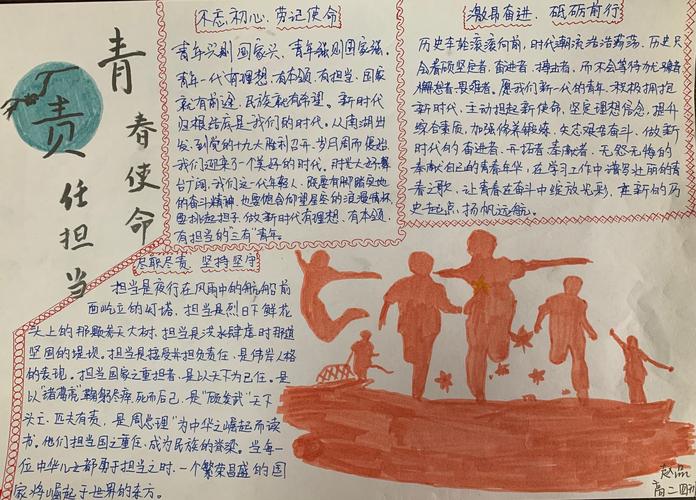 青春使命
责任担当
不忘初心、牢记使命
青年兴则国家兴，青年强则国家强。
青年一代有理想、有本领、有担当，国家
就有前途，民族就有希望。新时代
归根结底是我们的时代。从南湖出
发，到党的十九大胜利召开，岁月周而复始
我们迎来了一个美好的时代，时代大舞
台广阔，我们这一代年轻人，既要有脚踏实地
的奋斗精神，也要饱含仰望星空的浪漫情怀
要挑起担子，做新时代有理想、有本领、
有担当的“三有”青年。
激昂奋进、砥砺前行
历史车轮滚滚向前，时代潮流浩浩荡荡，历史只
会眷顾坚定者、奋进者、搏击者，而不会等待犹豫者
懈怠者、畏难者。愿我们新一代的青年，积极拥抱
新时代、主动担起新使命，坚定理想信念，提升
综合素质，加强修养锻炼，矢志艰苦奋斗，做新
时代的奋进者、开拓者、奉献者，无怨无悔的
奉献自己的青春年华，在学习工作中谱写壮丽的青
春之歌，让青春在奋斗中绽放光彩，在新的历
史起点，扬帆远航。
尽职尽责，坚持坚守
担当是夜行在风雨中的航船前
面屹立的灯塔，担当是烈日下鲜花
头上的那颗参天大树，担当是洪水肆虐时那道
坚固的堤坝。担当是接受并担负责任，是伟岸人格
的表现。担当国家之重担者，是以天下为己任。是
以“诸葛亮”鞠躬尽瘁，死而后已，是“顾炎武”天下
兴亡，匹夫有责，是周总理“为中华之崛起而读
书，他们担当国之重任，成为民族的脊梁。当每一
位中华儿女都勇于担当之时，一个繁荣昌盛的国
家将崛起于世界的东方。
高二